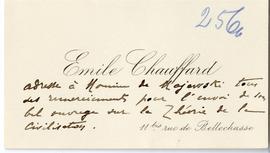 256
Emile Chauffard
adresse à Monsieur de Majewski tous
ses remerciements pour l'envoi de son
bel ouvrage sur la Théorie de la
Civilisation.
11 bis rue de Bellechasse